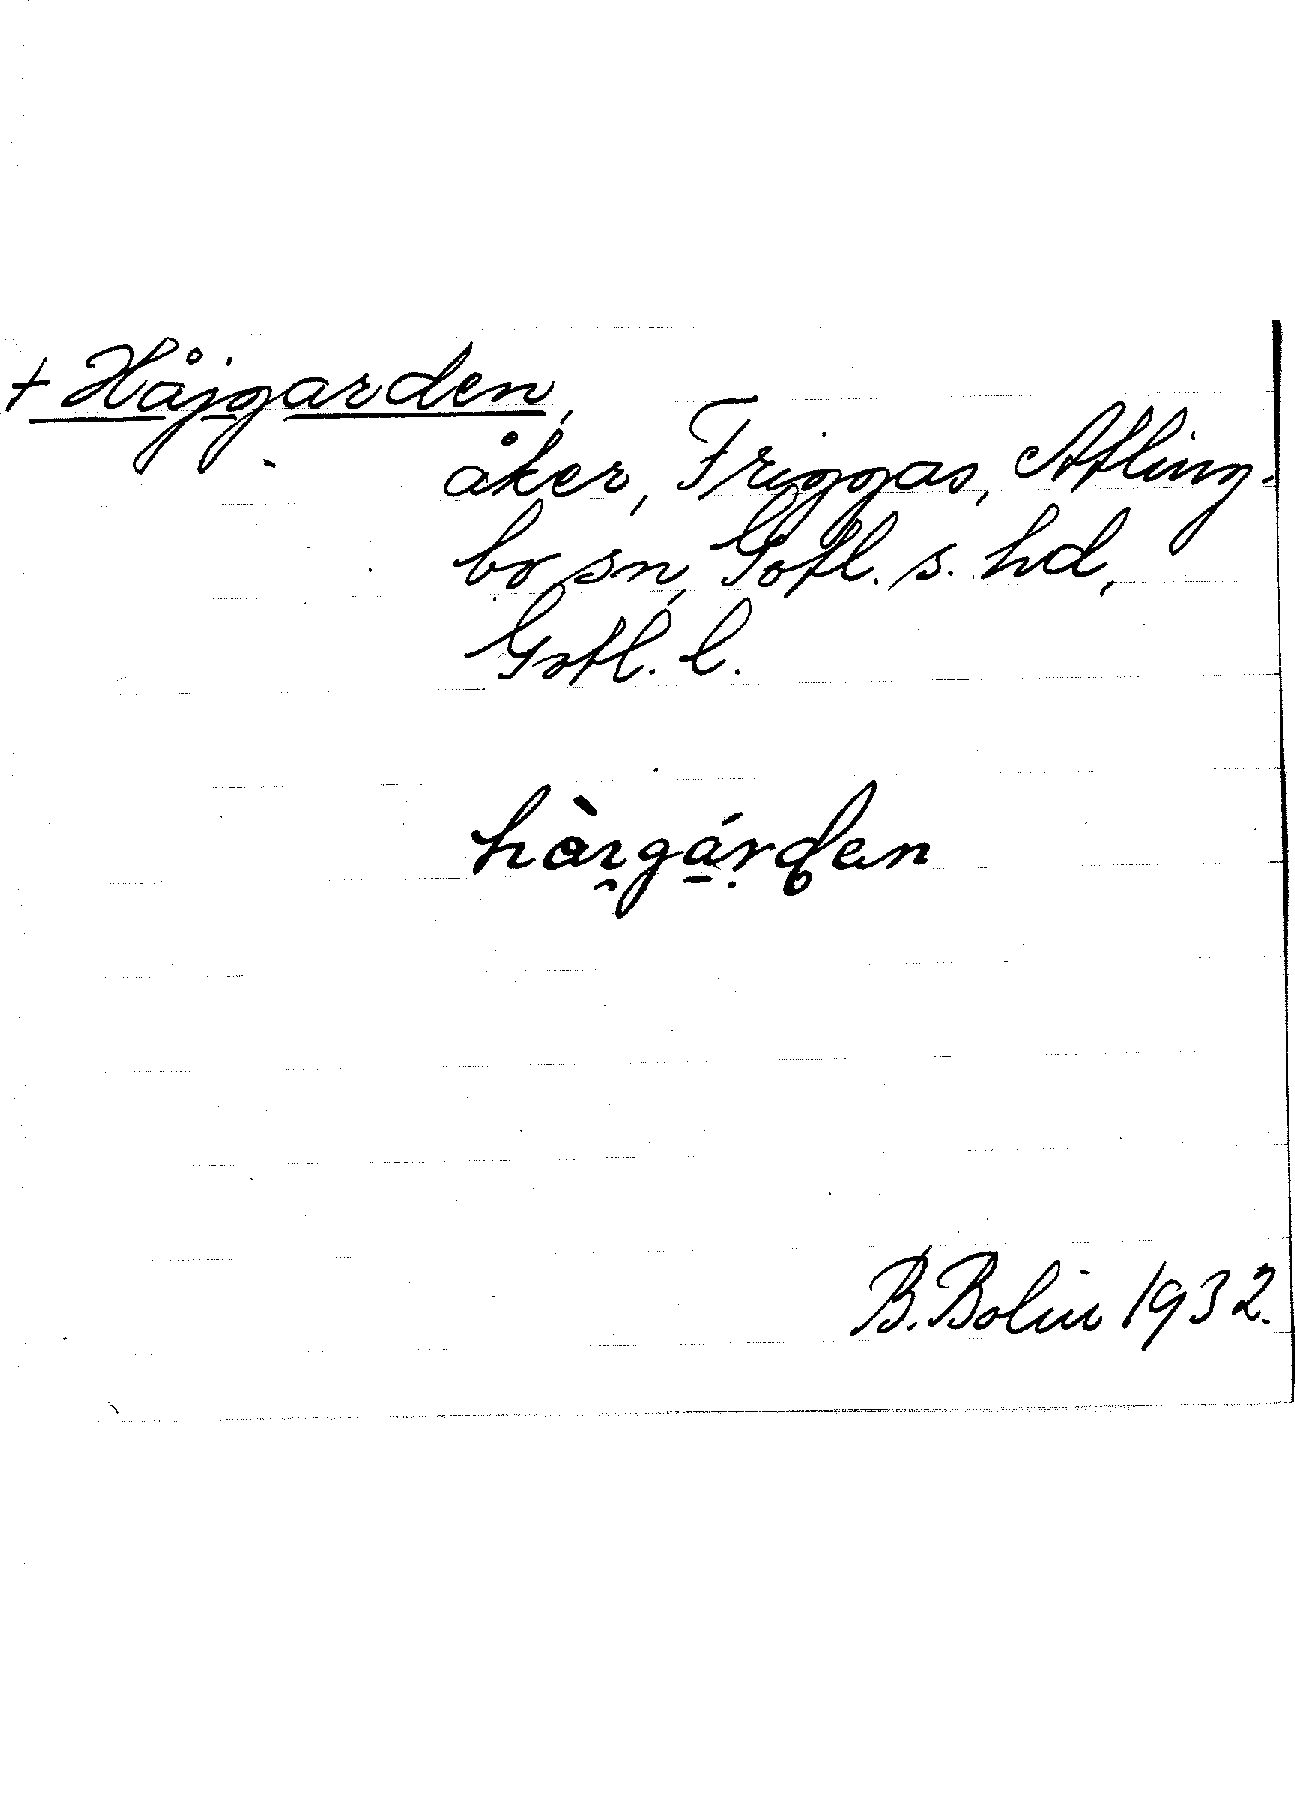 + Håjgarden,
åker, Friggas, Atling-
bo sn, Gotl. s. hd,
Gotl. l.
hàı̯gá̱rđen
B. Bolin 1932.